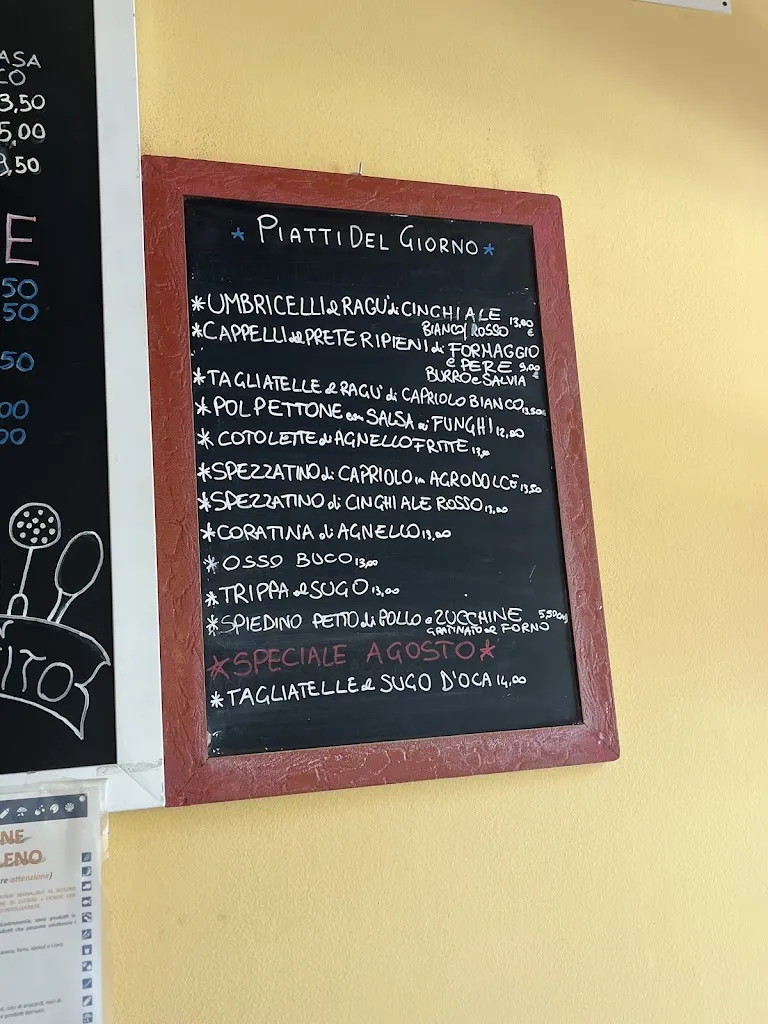 ASA
CO
3,50
5,00
9,50
E
50
50
50
00
00
ITO
* PIATTI DEL GIORNO *
* UMBRICELLI al RAGU' di CINGHIALE
BIANCO/ROSSO 13,00 €
* CAPPELLI del PRETE RIPIENI di FORMAGGIO
e PERE 9,00 €
BURRO e SALVIA
* TAGLIATELLE al RAGU' di CAPRIOLO BIANCO 13,50€
* POLPETTONE con SALSA ai FUNGHI 12,00
* COTOLETTE di AGNELLO FRITTE 13,00
* SPEZZATINO di CAPRIOLO in AGRODOLCE 13,50
* SPEZZATINO di CINGHIALE ROSSO 13,00
* CORATINA di AGNELLO 13,00
* OSSO BUCO 13,00
* TRIPPA al SUGO 13,00
* SPIEDINO PETTO di POLLO e ZUCCHINE 5,50
GRATINATO al FORNO
* SPECIALE AGOSTO *
* TAGLIATELLE al SUGO D'OCA 14,00
NE
LENO
re attenzione)